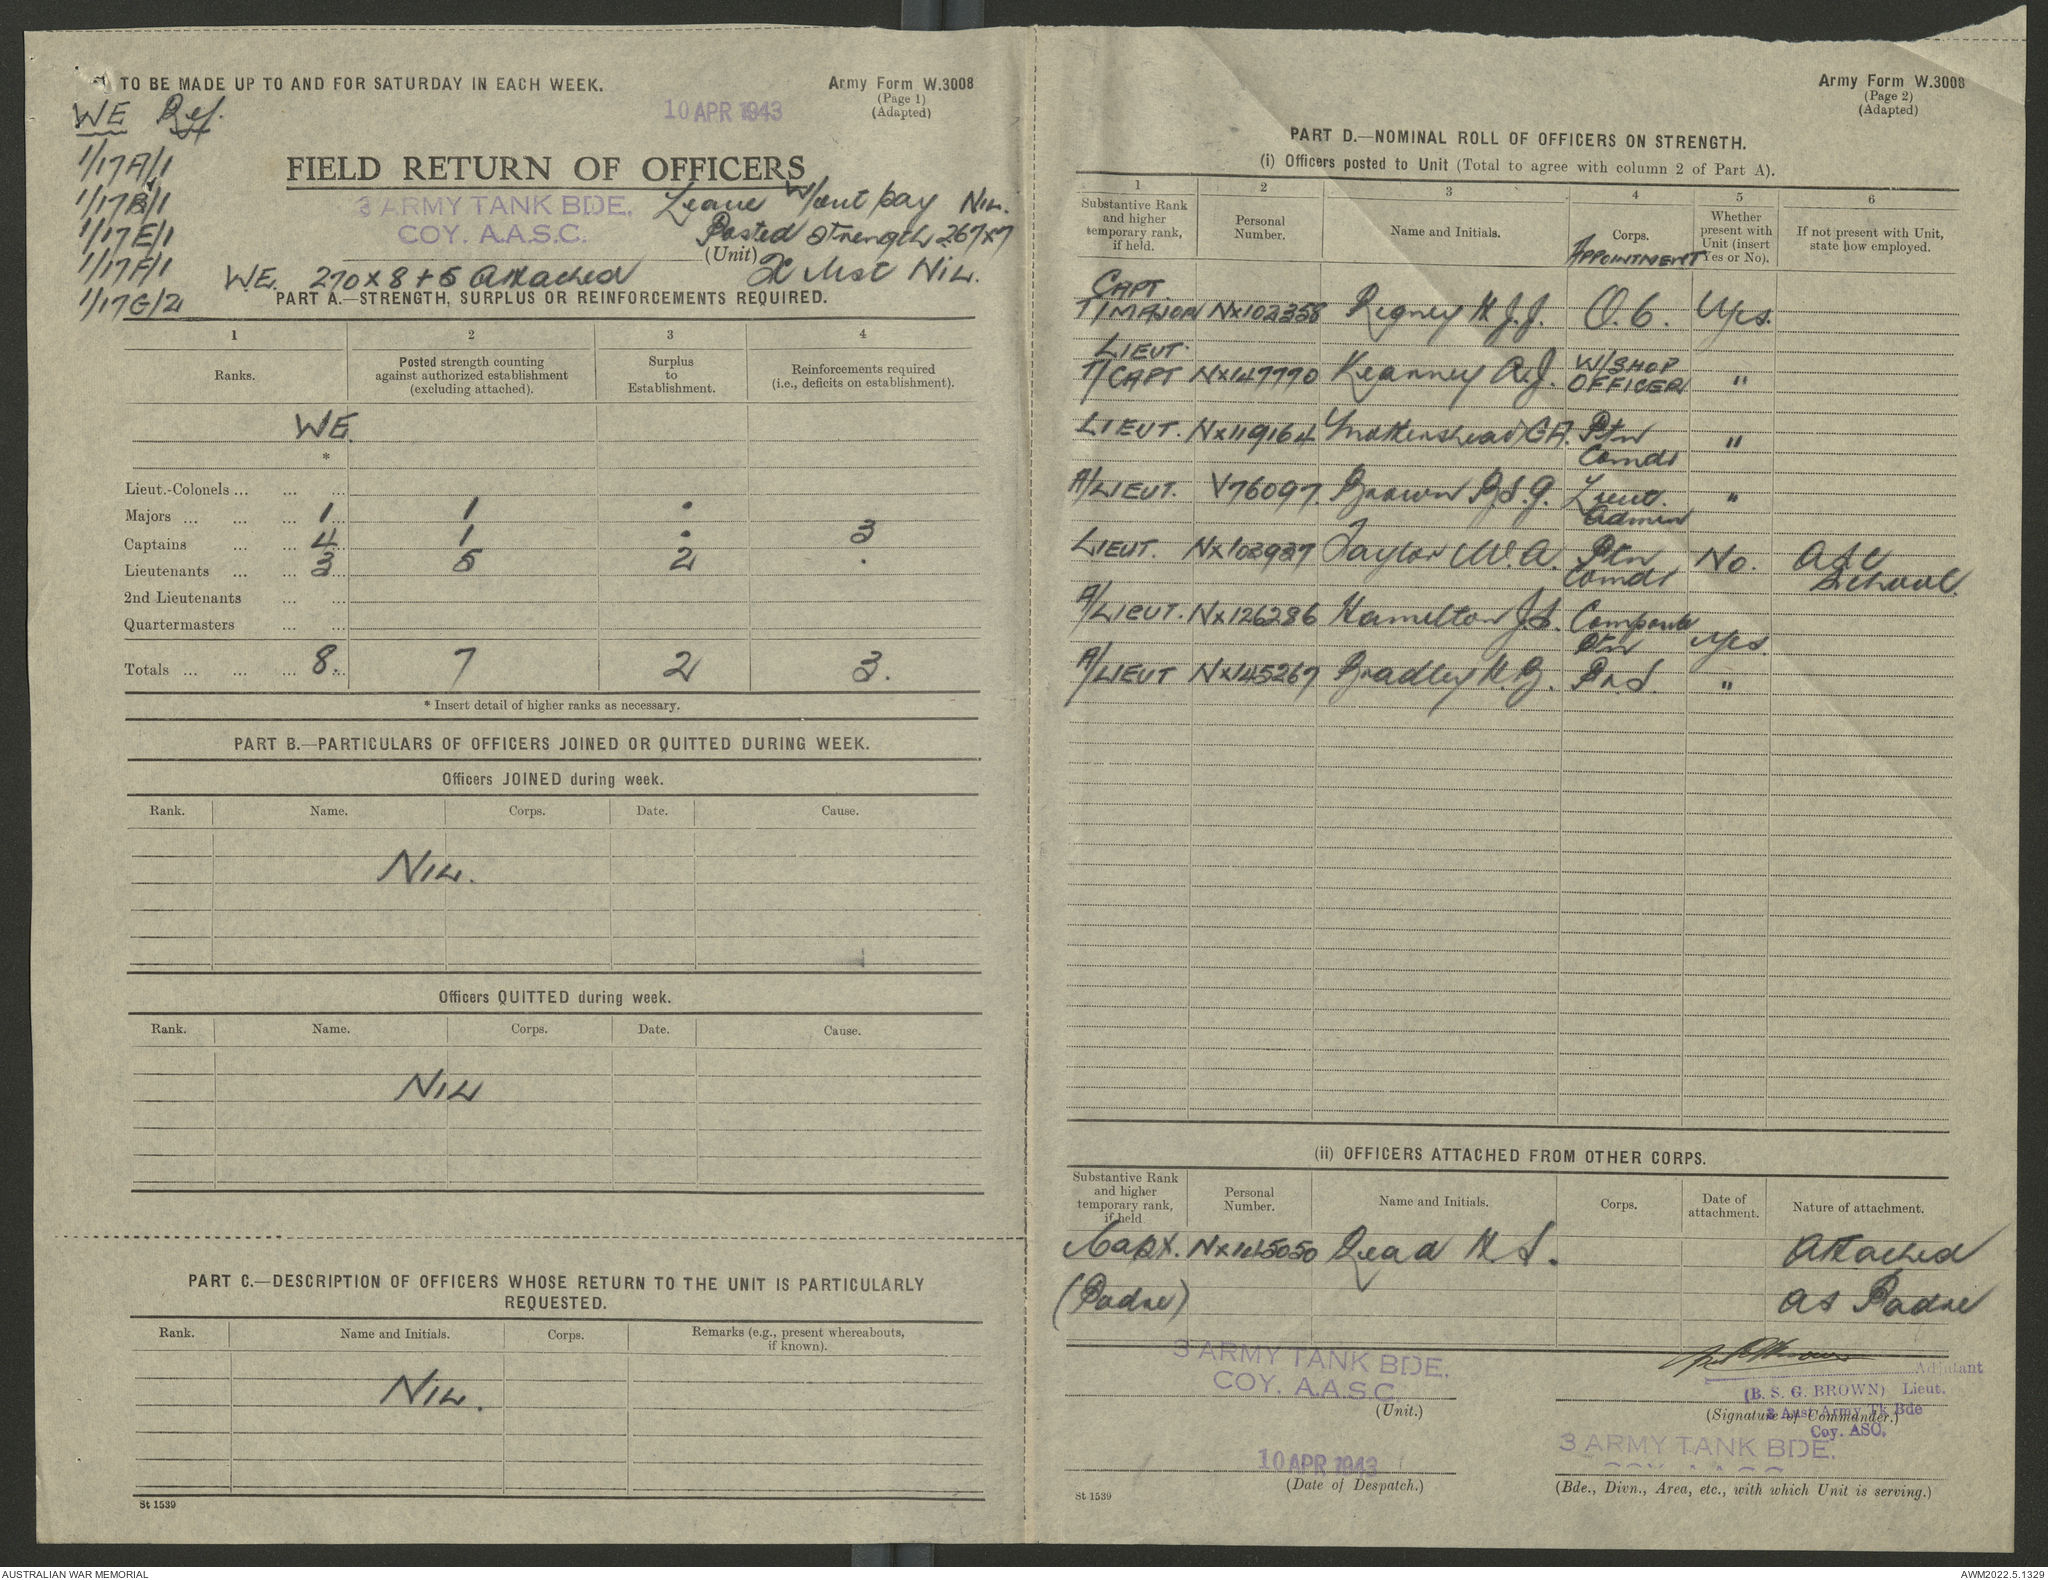 TO BE MADE UP TO AND FOR SATURDAY IN EACH WEEK.
Army Form W.3008
(Page 1)
(Adapted)
10 APR 1943
WE Ref.
1/17A/1
1/17B/1
1/17E/1
1/17F/1
1/17G/2
FIELD RETURN OF OFFICERS
3 ARMY TANK BDE.
COY. A.A.S.C.
(Unit)
Leave W/out pay NIL.
Posted strength 267x7
X List NIL.
WE. 270 x 8 + 5 Attached
PART A.—STRENGTH, SURPLUS OR REINFORCEMENTS REQUIRED.
1 2 3 4
Ranks. Posted strength counting against authorized establishment (excluding attached). Surplus to Establishment. Reinforcements required (i.e., deficits on establishment).
WE.
*
Lieut.-Colonels ... ... ...
Majors ... ... ... 1 1 .
Captains ... ... 4 1 . 3
Lieutenants ... ... 3 5 2 .
2nd Lieutenants ... ...
Quartermasters ... ...
Totals ... ... ... 8 7 2 3.
* Insert detail of higher ranks as necessary.
PART B.—PARTICULARS OF OFFICERS JOINED OR QUITTED DURING WEEK.
Officers JOINED during week.
Rank. Name. Corps. Date. Cause.
NIL.
Officers QUITTED during week.
Rank. Name. Corps. Date. Cause.
NIL
PART C.—DESCRIPTION OF OFFICERS WHOSE RETURN TO THE UNIT IS PARTICULARLY
REQUESTED.
Rank. Name and Initials. Corps. Remarks (e.g., present whereabouts, if known).
NIL.
St 1539
Army Form W.3008
(Page 2)
(Adapted)
PART D.—NOMINAL ROLL OF OFFICERS ON STRENGTH.
(i) Officers posted to Unit (Total to agree with column 2 of Part A).
1 2 3 4 5 6
Substantive Rank and higher temporary rank, if held. Personal Number. Name and Initials. Corps. Whether present with Unit (insert Yes or No). If not present with Unit, state how employed.
APPOINTMENT
CAPT.
T/MAJOR NX102358 Regney H J.J. O.C. Yes.
LIEUT.
T/CAPT NX147770 Kearney R.J. W/SHOP OFFICER "
LIEUT. NX119164 Mottershead G A. Ptn Comdr "
A/LIEUT. V76097. Brown B.S.G. Lieut. Admin "
LIEUT. NX103937 Taylor W.A. Ptn Comdr No. ASC School.
A/LIEUT. NX126286 Hamilton J.S. Composite Ptn Yes.
A/LIEUT NX145267 Bradley H.B. B.R.S. "
(ii) OFFICERS ATTACHED FROM OTHER CORPS.
Substantive Rank and higher temporary rank, if held Personal Number. Name and Initials. Corps. Date of attachment. Nature of attachment.
Capt. Read H S. Attached
(Padre) as Padre
3 ARMY TANK BDE.
COY. A.A.S.C
(Unit.)
Adjutant
(B. S. G. BROWN) Lieut.
(Signature of Commander.)
3 Aust Army Tk Bde
Coy. ASC.
10 APR 1943
(Date of Despatch.)
3 ARMY TANK BDE.
(Bde., Divn., Area, etc., with which Unit is serving.)
St 1539
AUSTRALIAN WAR MEMORIAL
AWM2022.5.1329